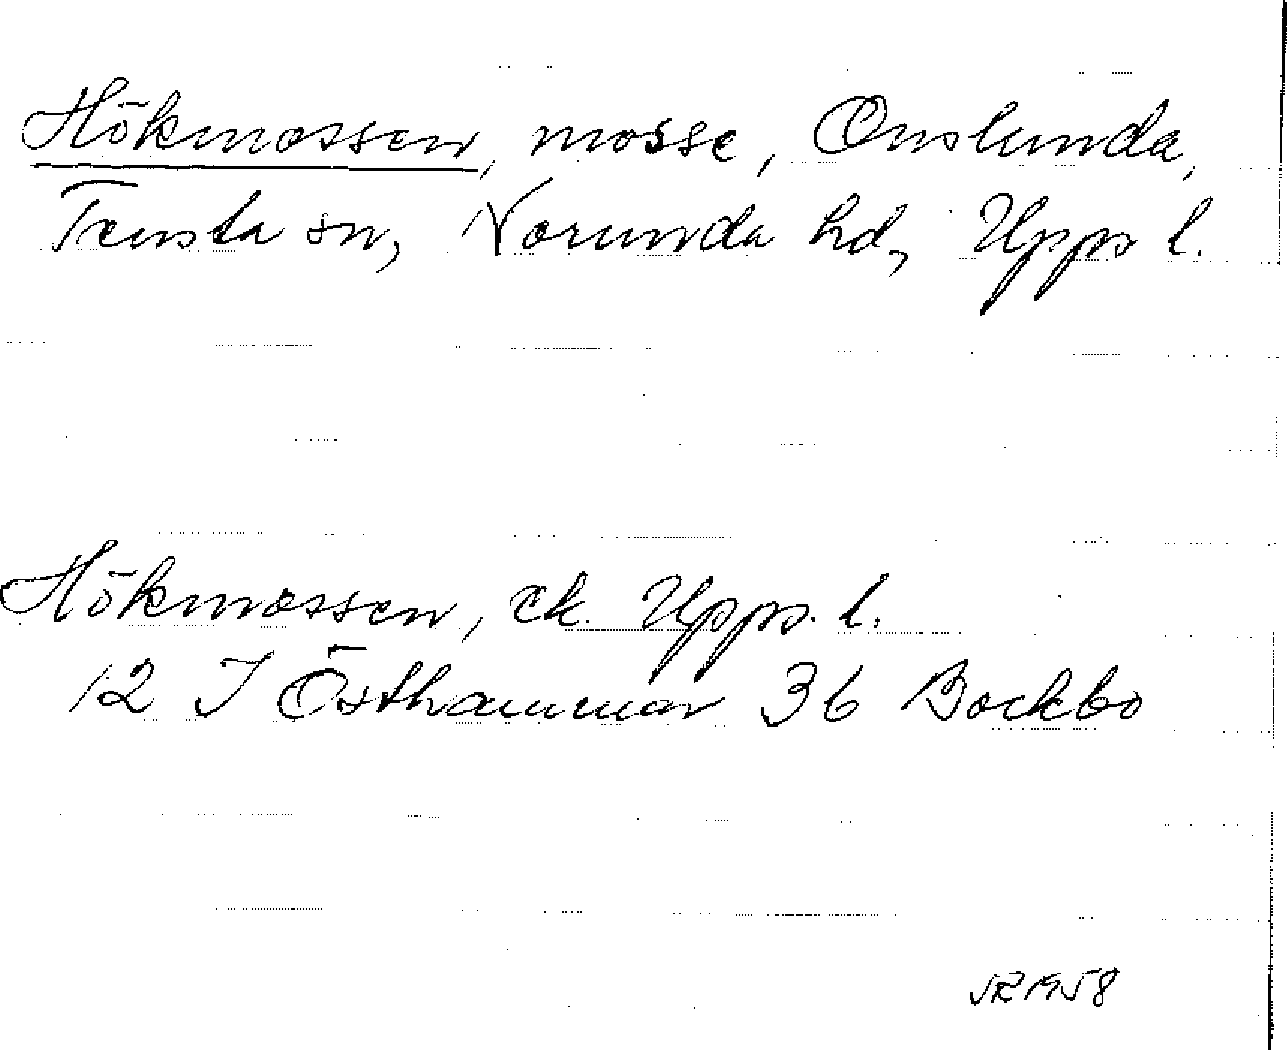 Hökmossen, mosse, Onslunda,
Tensta sn, Norunda hd, Upps l.
Hökmossen, ek. Upps. l.
12 I Östhammar 36 Bockbo
1958